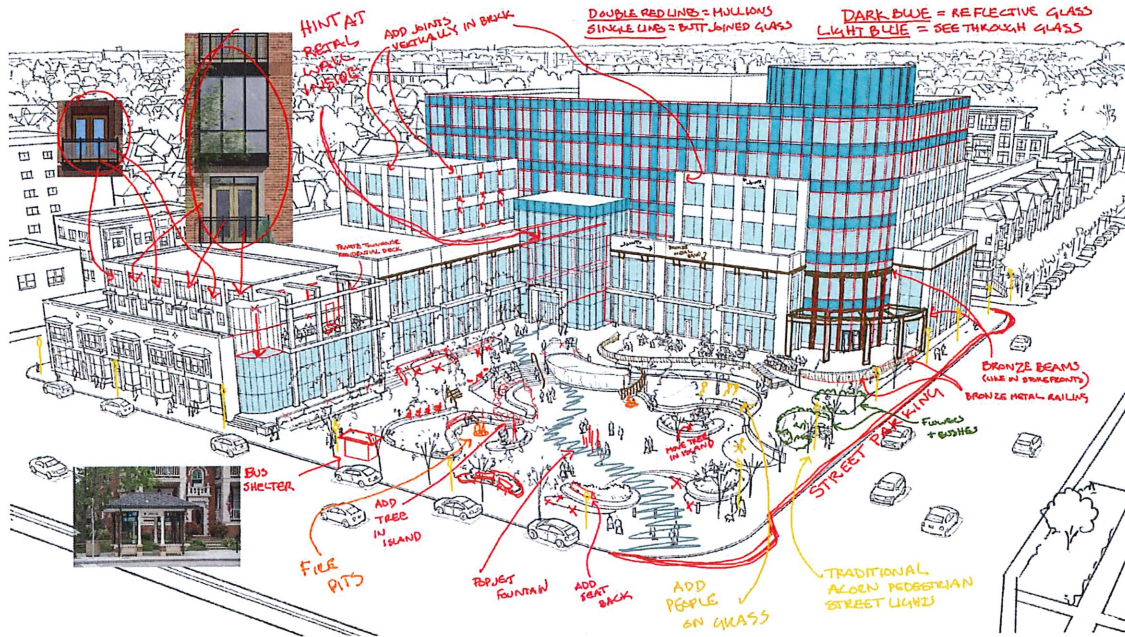 HINT AT
RETAIL
WALL
INSIDE
ADD JOINTS
VERTICALLY IN BRICK
DOUBLE RED LINES = MULLIONS
SINGLE LINES = BUTT JOINED GLASS
DARK BLUE = REFLECTIVE GLASS
LIGHT BLUE = SEE THROUGH GLASS
PRIVATE TOWNHOUSE
RESIDENTIAL DECK
BRONZE BEAMS
(LIKE IN STOREFRONTS)
BRONZE METAL RAILING
FLOWERS
+ BUSHES
STREET PARKING
MOVE TREE
IN ISLAND
BUS
SHELTER
ADD
TREE
IN
ISLAND
FIRE
PITS
POPJET
FOUNTAIN
ADD
SEAT
BACK
ADD
PEOPLE
ON GRASS
TRADITIONAL
ACORN PEDESTRIAN
STREET LIGHTS